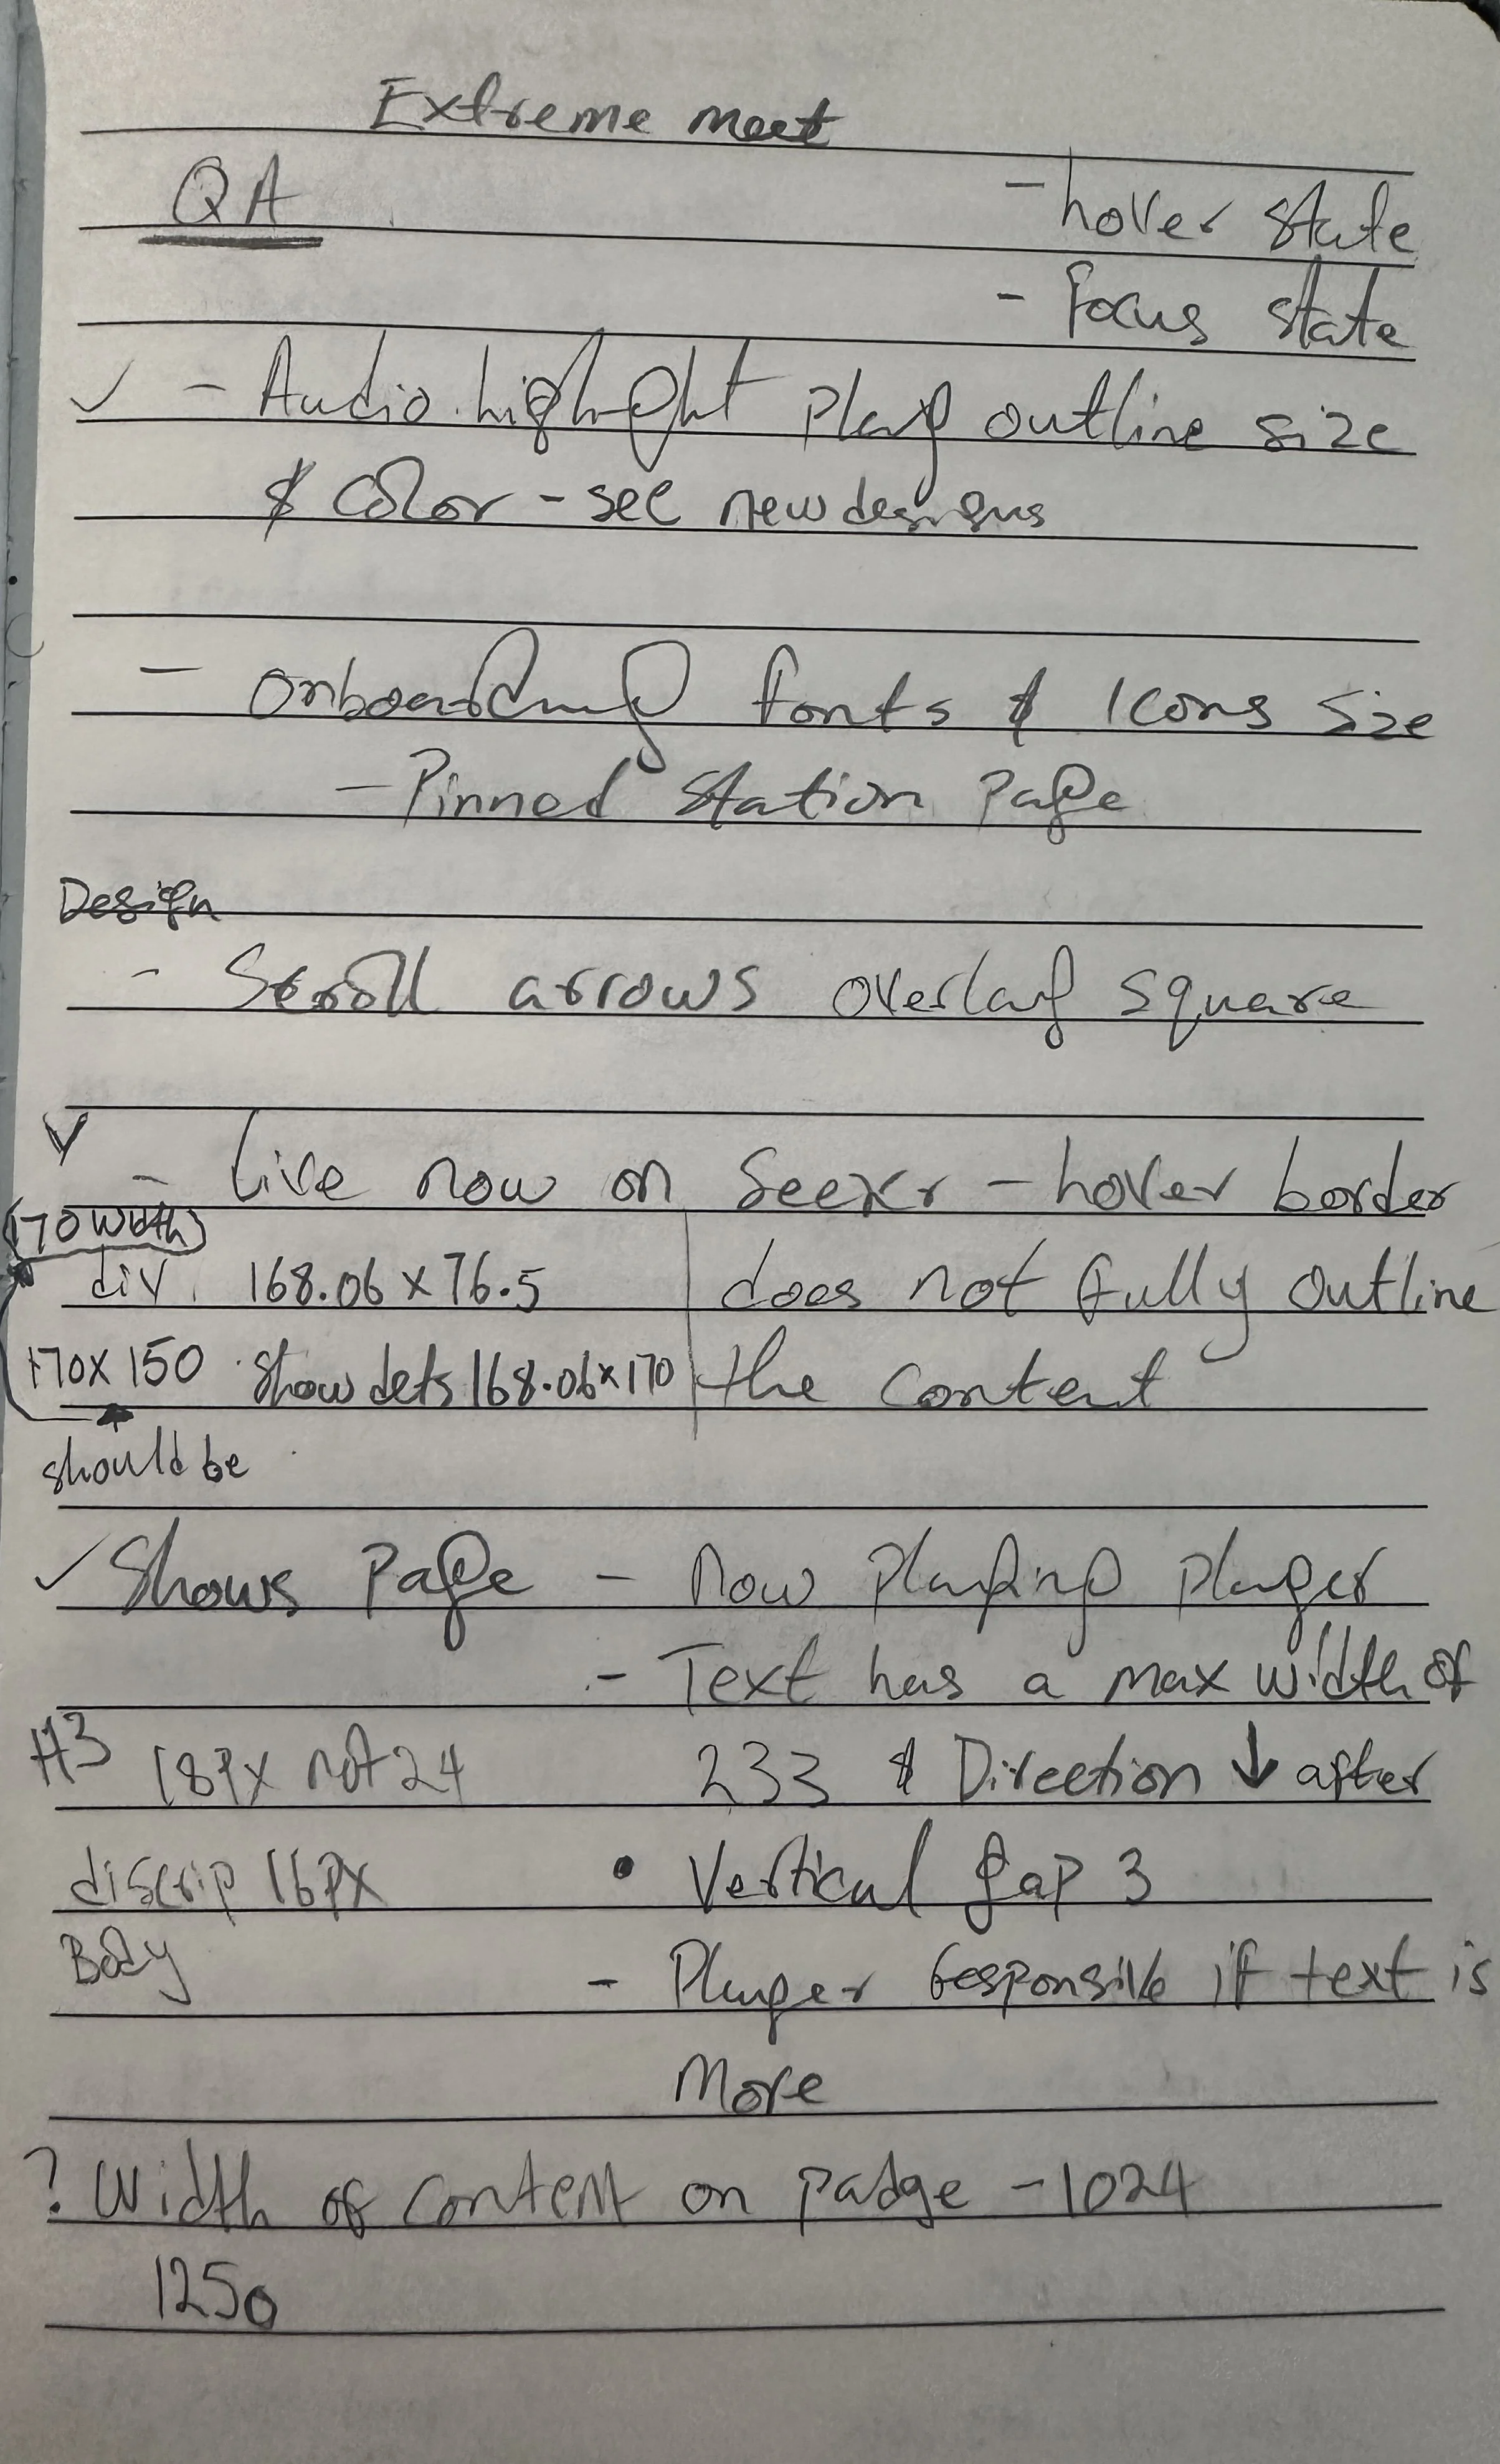 Extreme meet
QA
- hover state
- focus state
✓ - Audio highlight play outline size
& color - see new designs
- onboarding fonts & Icons size
- Pinned station page
Design
- Scroll arrows overlay square
✓ - Live now on Seekr - hover border
(170 width)
div 168.06 x 76.5 does not fully outline
170x150 show dets 168.06x170 the content
should be
✓ Shows Page - Now playing player
- Text has a max width of
H3 18px not 24 233 & Direction ↓ after
discrip 16px • Vertical gap 3
Body - Player responsive if text is
More
? Width of content on padge - 1024
1250